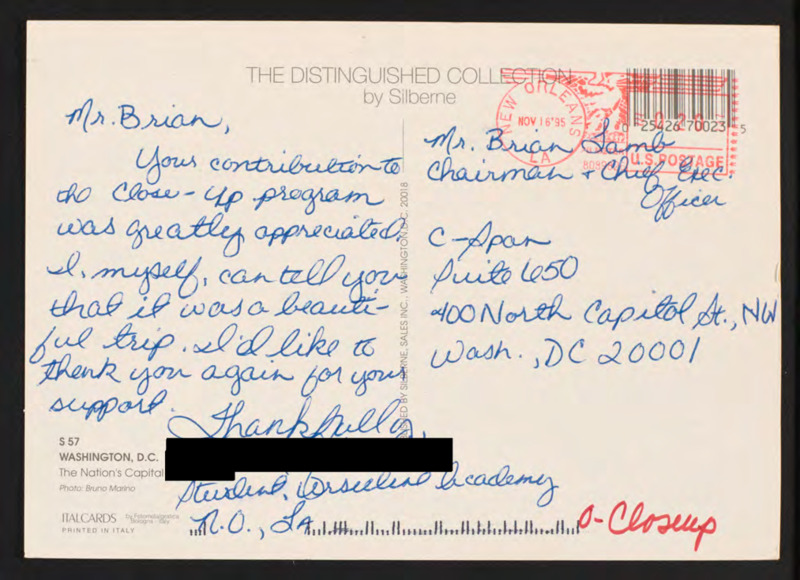 THE DISTINGUISHED COLLECTION
by Silberne
Mr. Brian,
Your contribution to
the Close-Up program
was greatly appreciated.
I, myself, can tell you
that it was a beauti-
ful trip. I'd like to
thank you again for your
support.
Thankfully,
Student, Ursuline Academy
N.O., LA
S 57
WASHINGTON, D.C.
The Nation's Capital
Photo: Bruno Marino
ITALCARDS
PRINTED IN ITALY
BY SILBERNE, SALES INC., WASHINGTON, D.C. 20018
NEW ORLEANS
NOV 16'95
LA
U.S. POSTAGE
0 25426 70023 5
Mr. Brian Lamb
Chairman + Chief Exec.
Officer
C-Span
Suite 650
400 North Capitol St., NW
Wash., DC 20001
O-Closeup